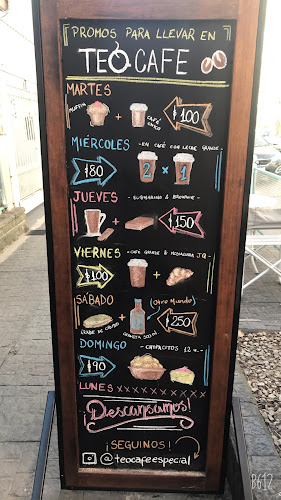 PROMOS PARA LLEVAR EN
TEO CAFE
MARTES
MUFFIN + CAFÉ CHICO $100
MIÉRCOLES - EN CAFÉ CON LECHE GRANDE -
$80 2 x 1
JUEVES - SUBMARINO & BROWNIE -
+ $150
VIERNES - CAFÉ GRANDE & MEDIALUNA JQ -
$100 +
SÁBADO (Otro Mundo)
+ $250
CERVEZA 500ml
DOMINGO - CHIPACITOS 12 u. -
$90
LUNES xxxxxxxxx
¡Descansamos!
¡SEGUINOS!
@teocafeespecial
B612